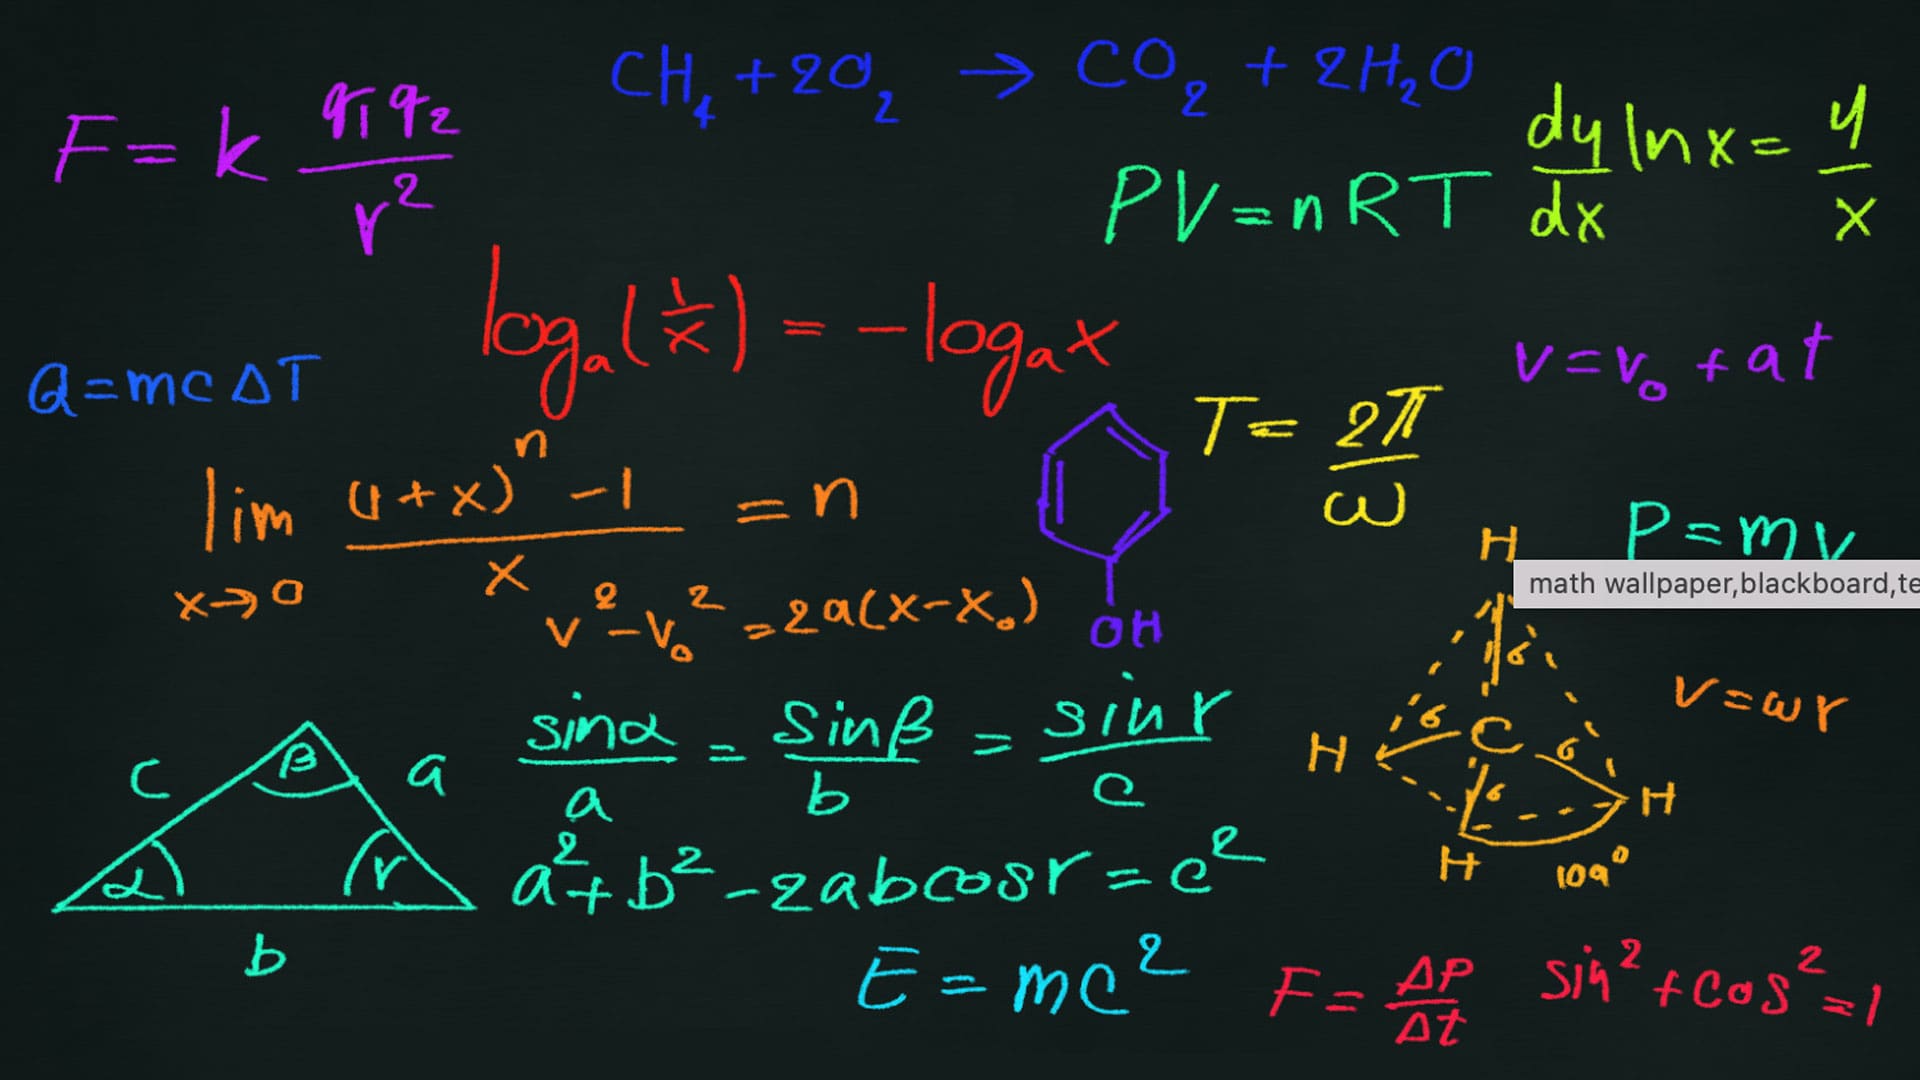 CH₄ + 2O₂ → CO₂ + 2H₂O
F = k q₁q₂ / r²
dy/dx ln x = y/x
PV = nRT
logₐ(1/x) = -logₐx
v = v₀ + at
Q = mcΔT
T = 2π/ω
lim x→0 ((1+x)ⁿ - 1)/x = n
P = mv
H
math wallpaper,blackboard,te
v² - v₀² = 2a(x-x₀)
OH
σ
v = ωr
σ C σ
H H
σ
H 109°
c β a
α r
b
sinα/a = sinβ/b = sin r/c
a² + b² - 2abcosr = c²
E = mc²
F = ΔP/Δt
sin² + cos² = 1